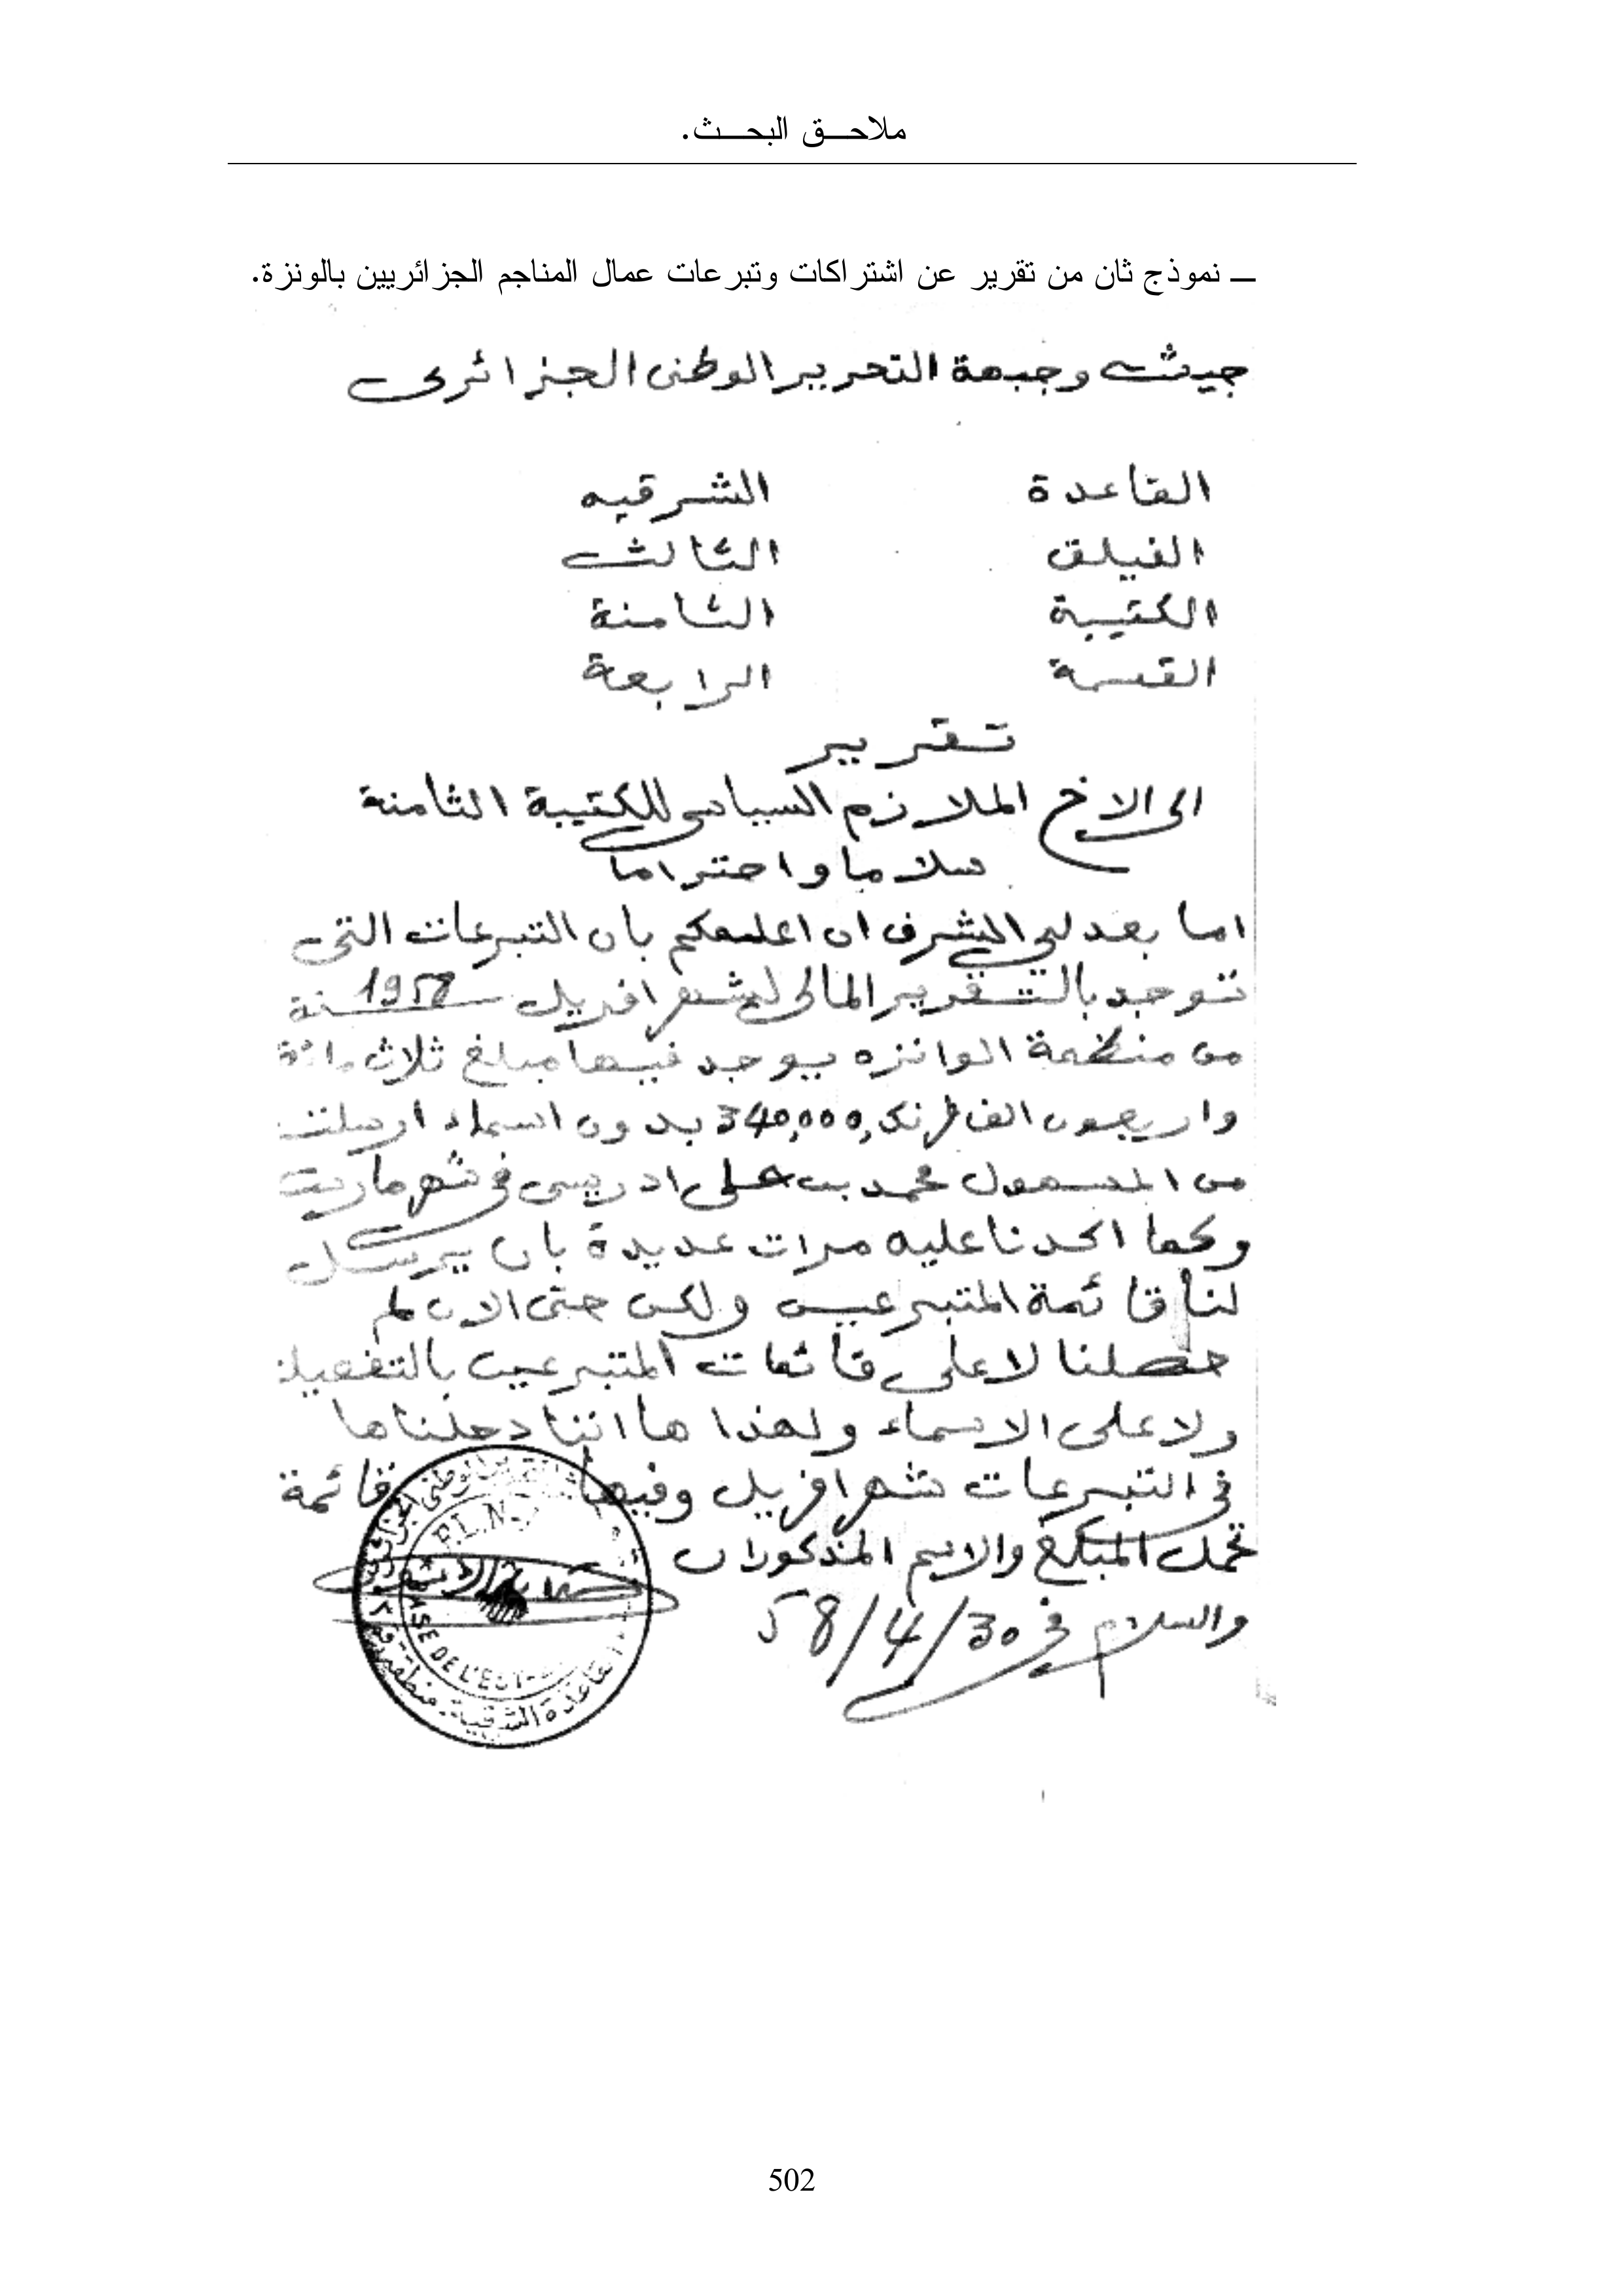 ملاحـــق البحـــث.
ــ نموذج ثان من تقرير عن اشتراكات وتبرعات عمال المناجم الجزائريين بالونزة.
جيش وجبهة التحرير الوطني الجزائري
القاعدة الشرقيه
الفيلق الثالث
الكتيبة الثامنة
القسمة الرابعة
تقرير
الى الاخ الملازم السياسي للكتيبة الثامنة
سلاما واحتراما
اما بعد لي الشرف ان اعلمكم بان التبرعات التي
توجد بالتقرير المالي لشهر افريل سنة 1958
من منظمة الوانزه يوجد فيها مبلغ ثلاث مائة
واربعون الف فرنك 340,000, بدون اسماء ارسلت
من المسعول محمد بن علي ادريسي في شهر مارس
وكما اكدنا عليه مرات عديدة بان يرسل
لنا قائمة المتبرعين ولكن حتى الان لم
حصلنا لا على قائمات المتبرعين بالتفصيل
ولا على الاسماء ولهذا ها اننا دخلناها
في التبرعات شهر افريل وفيها قائمة
تحمل المبلغ والاسم المذكوران
والسلام في 30/4/58
F.L.N
BASE DE L'EST
القاعدة الشرقية منطقة رقم
502